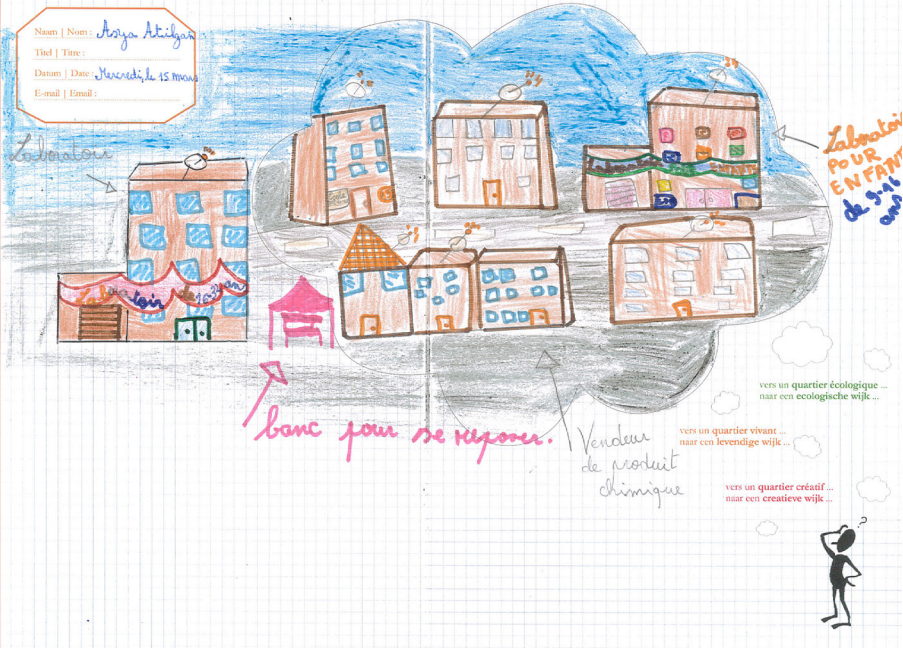 Naam | Nom : Asya Atilgan
Titel | Titre :
Datum | Date : Mercredi, le 15 mars
E-mail | Email :
Laboratoir
Laboratoir
POUR
ENFANT
de 9-16
ans
Laboratoir de 16-32 ans
banc pour se reposer.
Vendeur
de produit
chimique
vers un quartier écologique ...
naar een ecologische wijk ...
vers un quartier vivant ...
naar een levendige wijk ...
vers un quartier créatif ...
naar een creatieve wijk ...
?